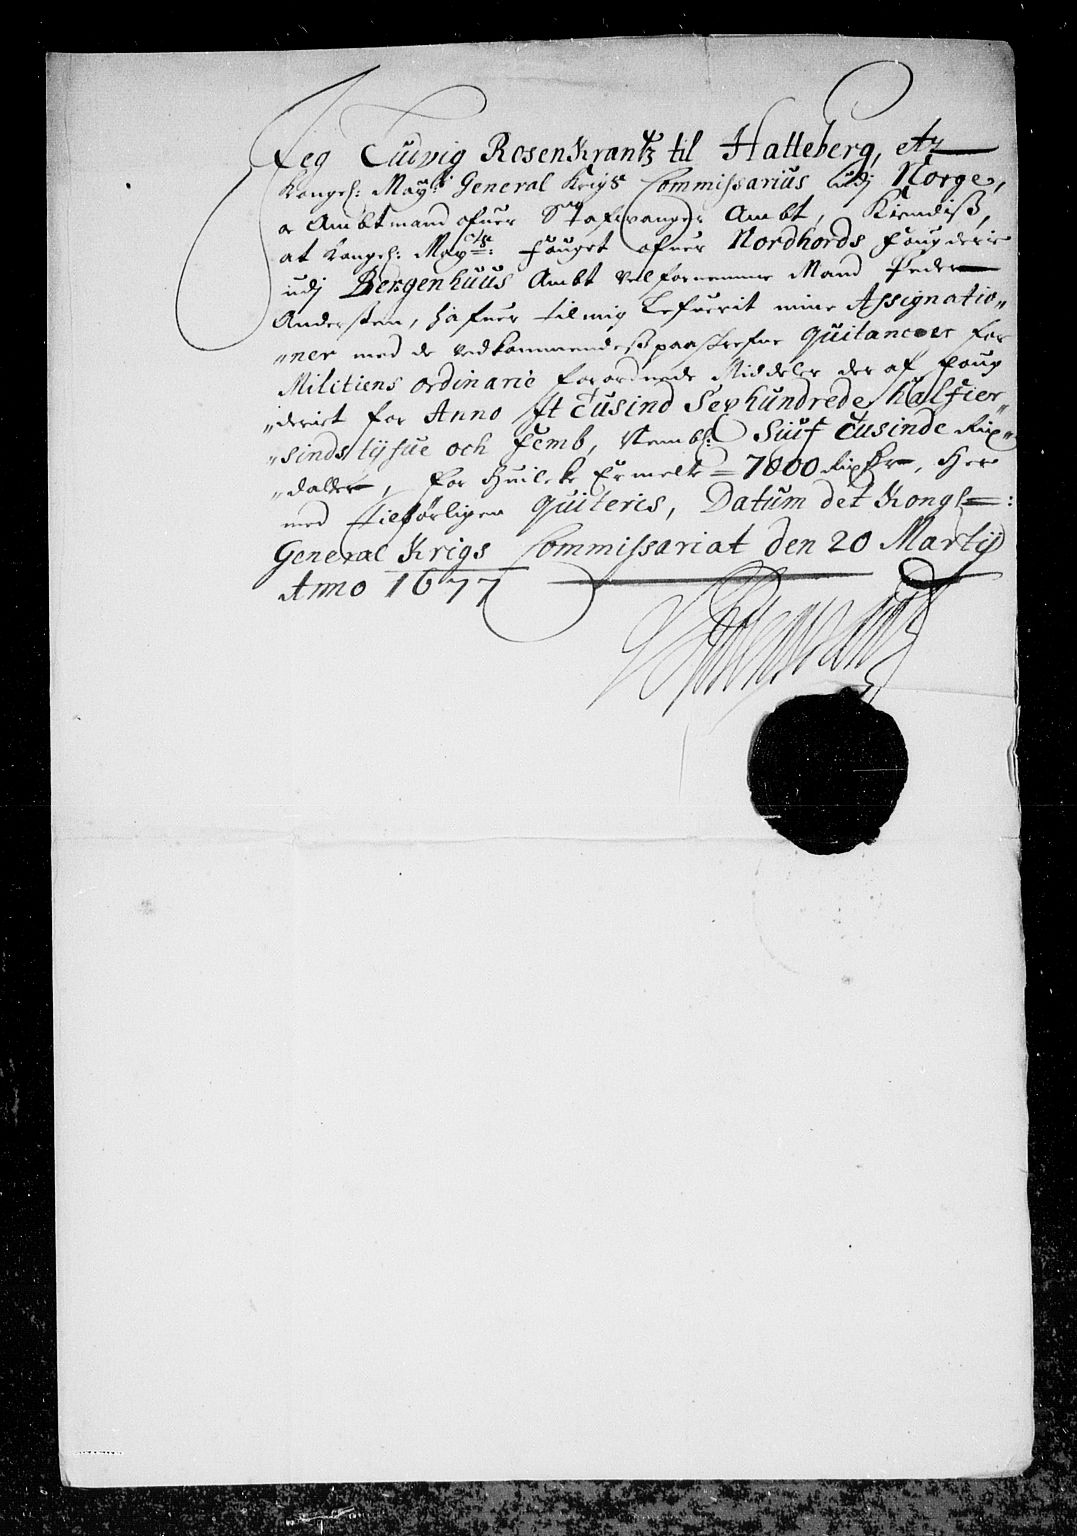 Jeg Ludvig Rosenkrantz til Hatteberg, etz
Kongel: May: General Krigs Commissarius udj Norge,
o Ambtmand ofuer Stafwanger Ambt, Kiendiß,
at Kongel: May: Fouget ofuer Nordhords Fougderie
udj Bergenhuus Ambt velfornemme Mand Peder
Andersen, hafuer til mig lefuerit mine Assignatio„
„ner med de vedkommendeß paaskrefne Quitancer for
Militiens ordinarie forordnede Middeler der af foug
„deriet for Anno
„sinds tyfue och Femb, Nembl: Siuf Tusinde Rix„
„daller, for huilcke ermelte 7000 Rixdr, Her
med tilbørligen Quiteris, Datum det Kongl:
General Krigs Commissariat den 20 Martij
Anno 1677